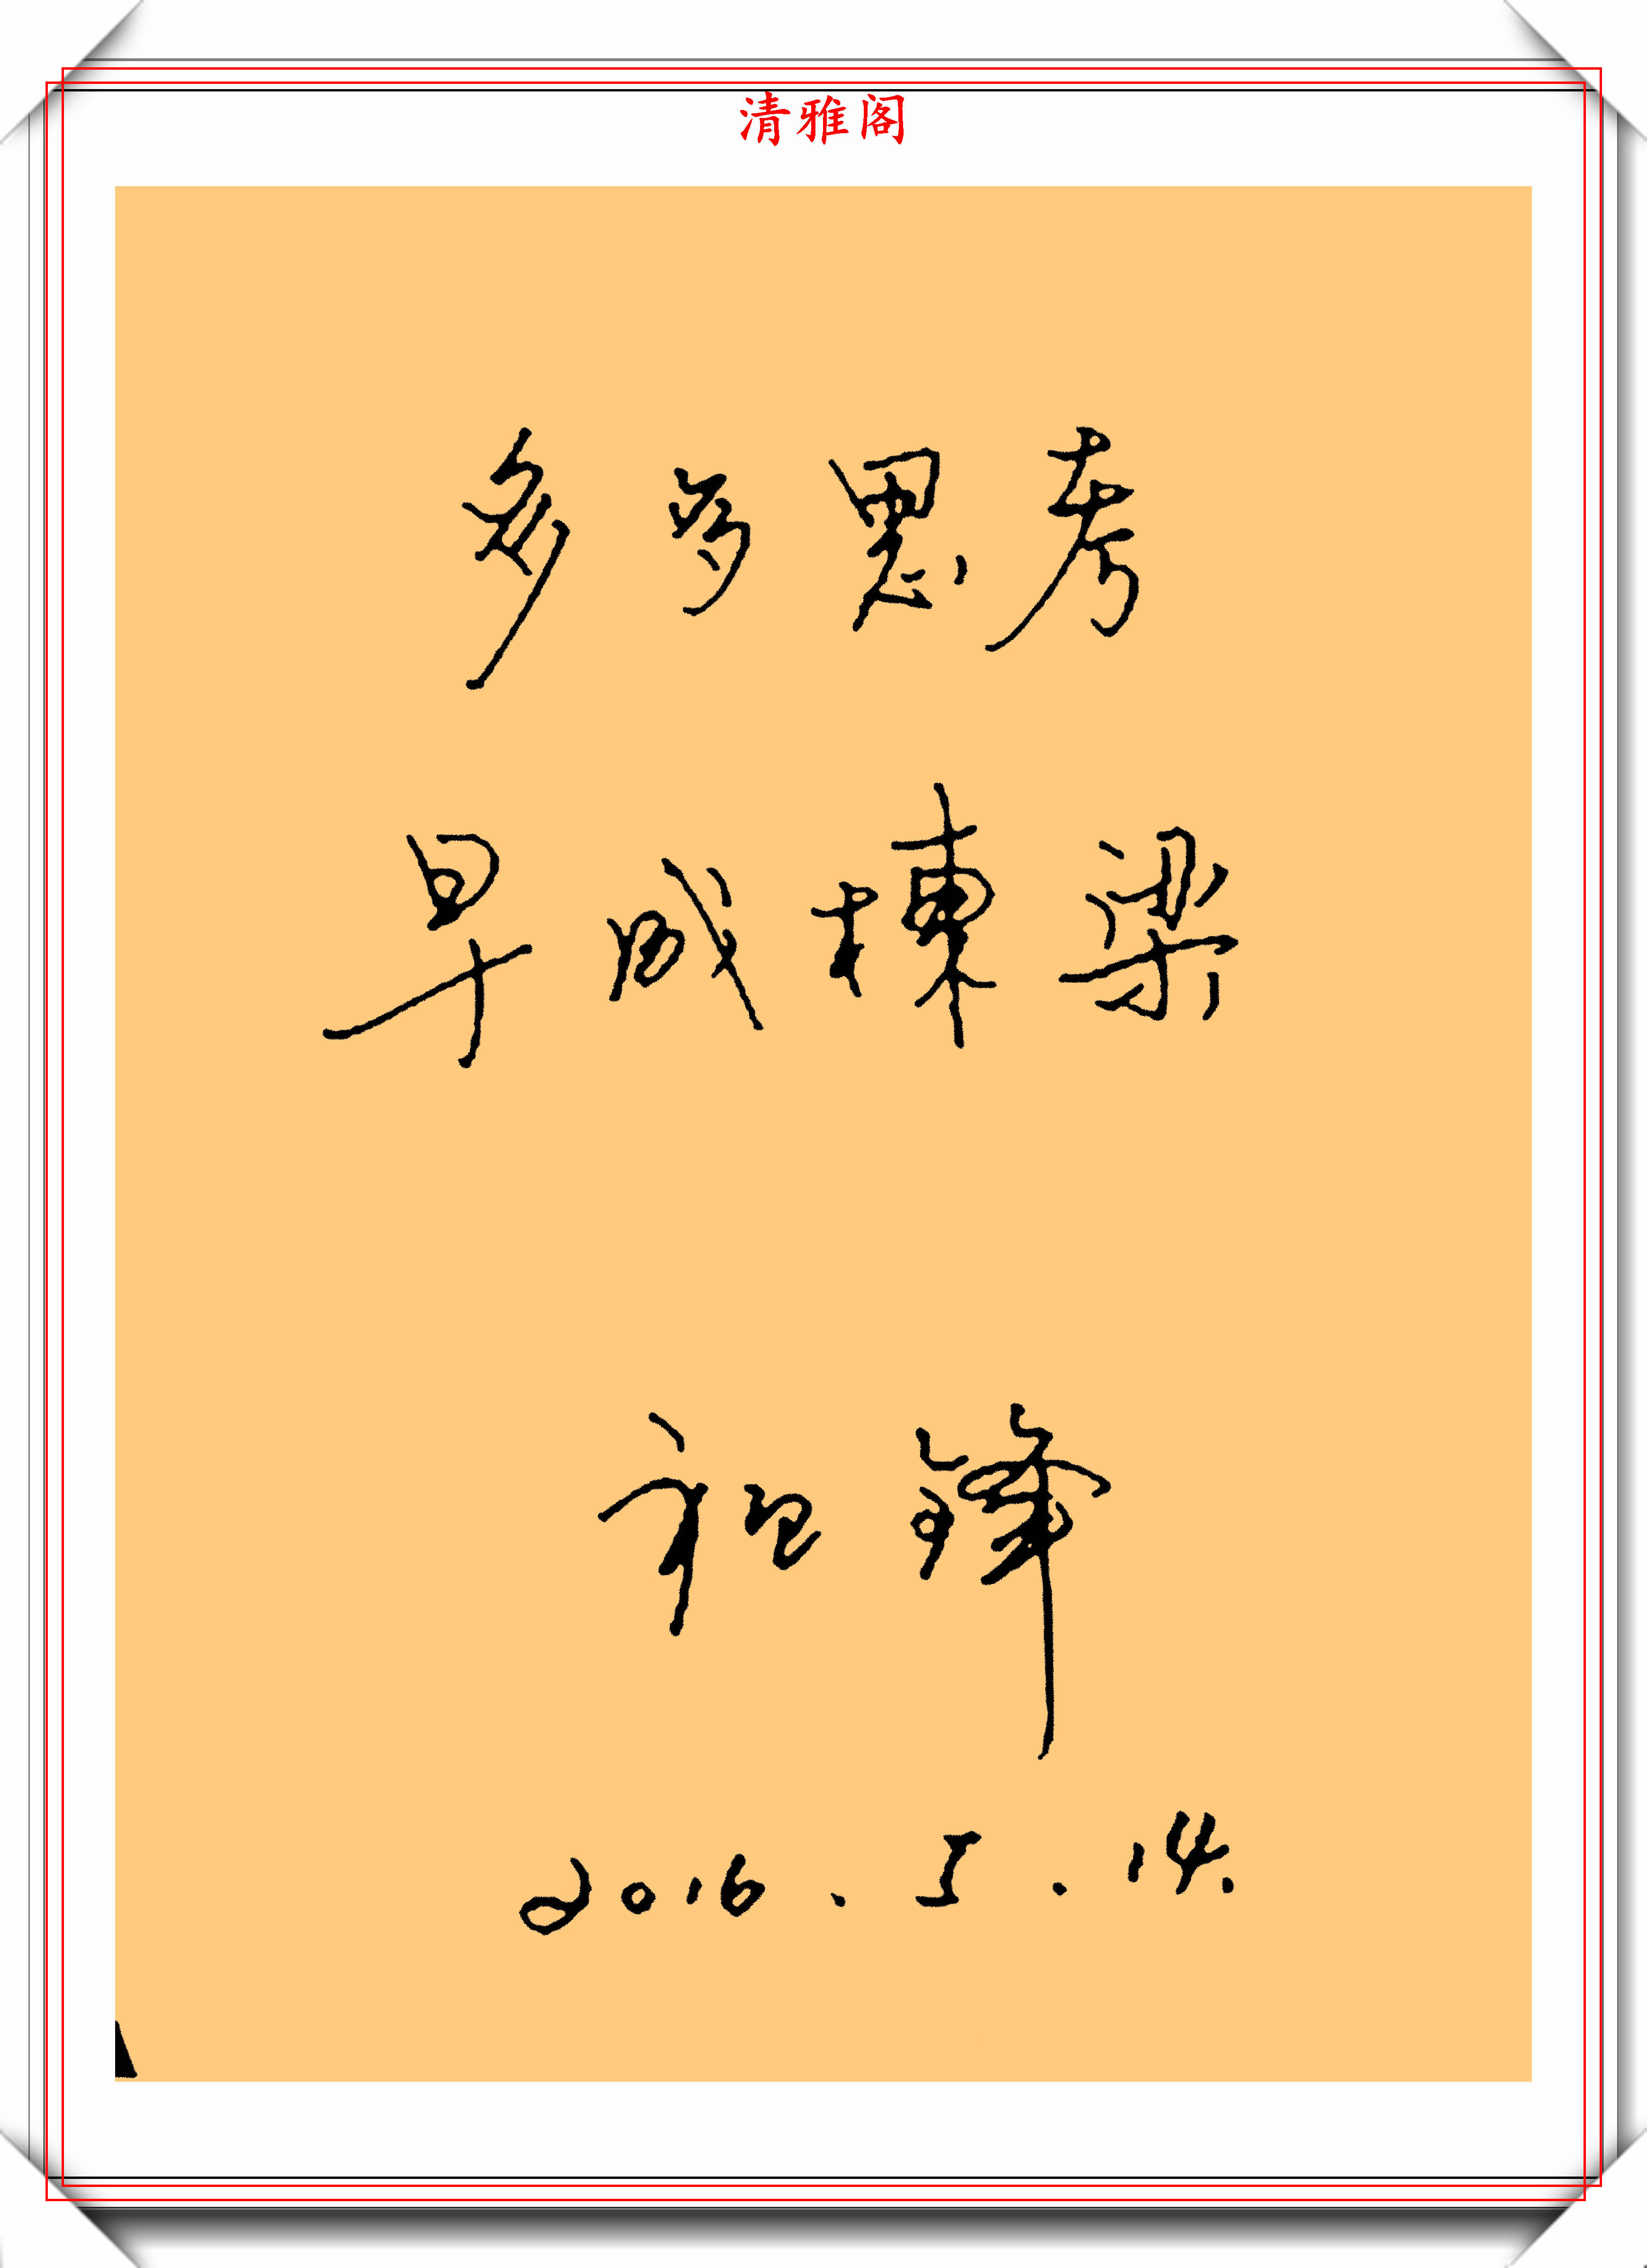 清雅阁
多多思考
早成栋梁
祖锋
2016.5.14.